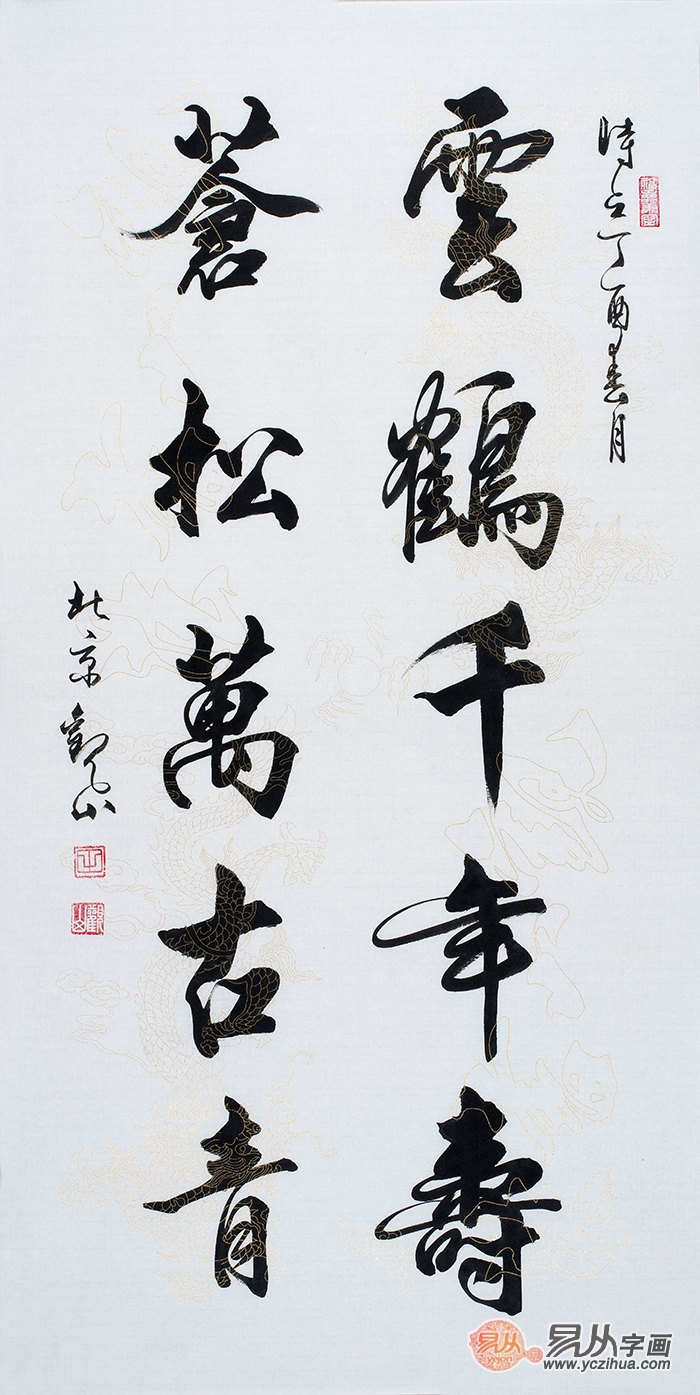 時在丁酉春月
雲鶴千年壽
蒼松萬古青
北京觀山
易从
yejon
易从字画
www.yczihua.com